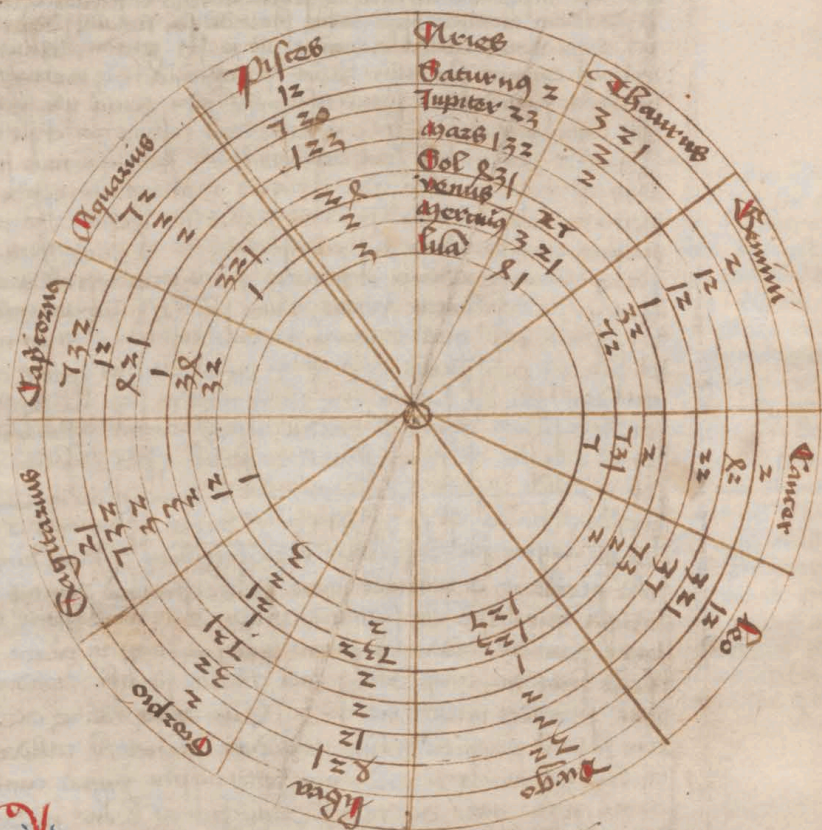 Aries
Saturnꝰ 2
Jupiter 23
Mars 132
Sol 831
Venus
Mercuriꝰ 321
luna 81
Thaurus
321
3
2
Gemini
2
12
12
1
32
72
Cancer
2
82
22
2
731
7
Leo
12
321
37
73
2
2
Virgo
32
2
2
1
123
127
Libra
821
12
2
2
732
2
Scorpio
2
32
721
121
2
3
Sagitarius
21
732
32
3
12
1
Capricornꝰ
732
12
821
1
38
32
Aquarius
72
2
2
321
1
Pisces
12
730
123
28
2
3